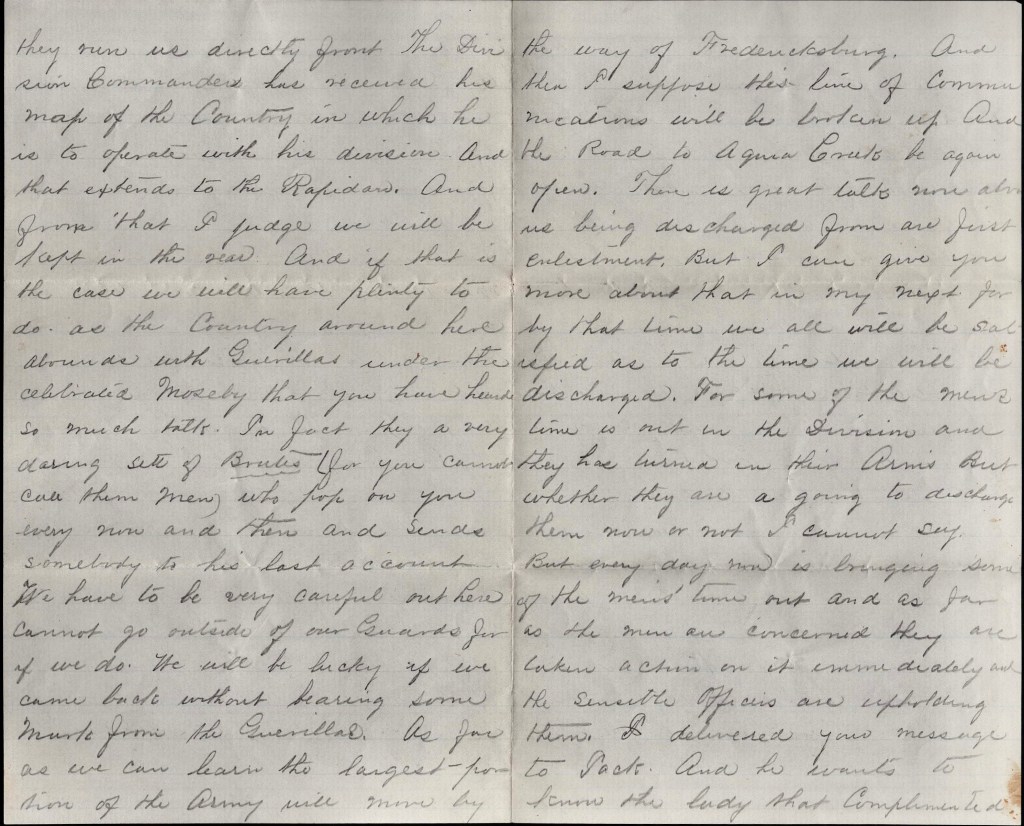 they run us directly front The Divi
sion Commanders has received his
map of the Country in which he
is to operate with his division. And
that extends to the Rapidan. And
from that I judge we will be
kept in the rear. And if that is
the case we will have plinty to
do. as the Country around here
abounds with Guerillas under the
celebrated Moseby that you have heard
so much talk. In fact they a very
daring sett of Brutes (for you cannot
call them men) who pop on you
every now and then and sends
somebody to his last account
We have to be very careful out here
cannot go outside of our Guards for
if we do. We will be lucky if we
came back without bearing some
Mark from the Guerillas. As far
as we can learn the largest por
tion of the Army will move by
the way of Fredericksburg. And
then I suppose this line of Commu
nications will be broken up And
the Road to Aquia Creek be again
open. There is great talk now abou
us being discharged from are first
enlistment. But I can give you
more about that in my next for
by that time we all will be sat
isfied as to the time we will be
discharged. For some of the mens
time is out in the Division and
they has turned in their Arms But
whether they are a going to discharge
them now or not I cannot say.
But every day now is bringing some
of the mens time out and as far
as the men are concerned they are
taken action on it immediately and
the sensible Officers are upholding
them. I delivered your message
to Jack. And he wants to
know the lady that Complimented.